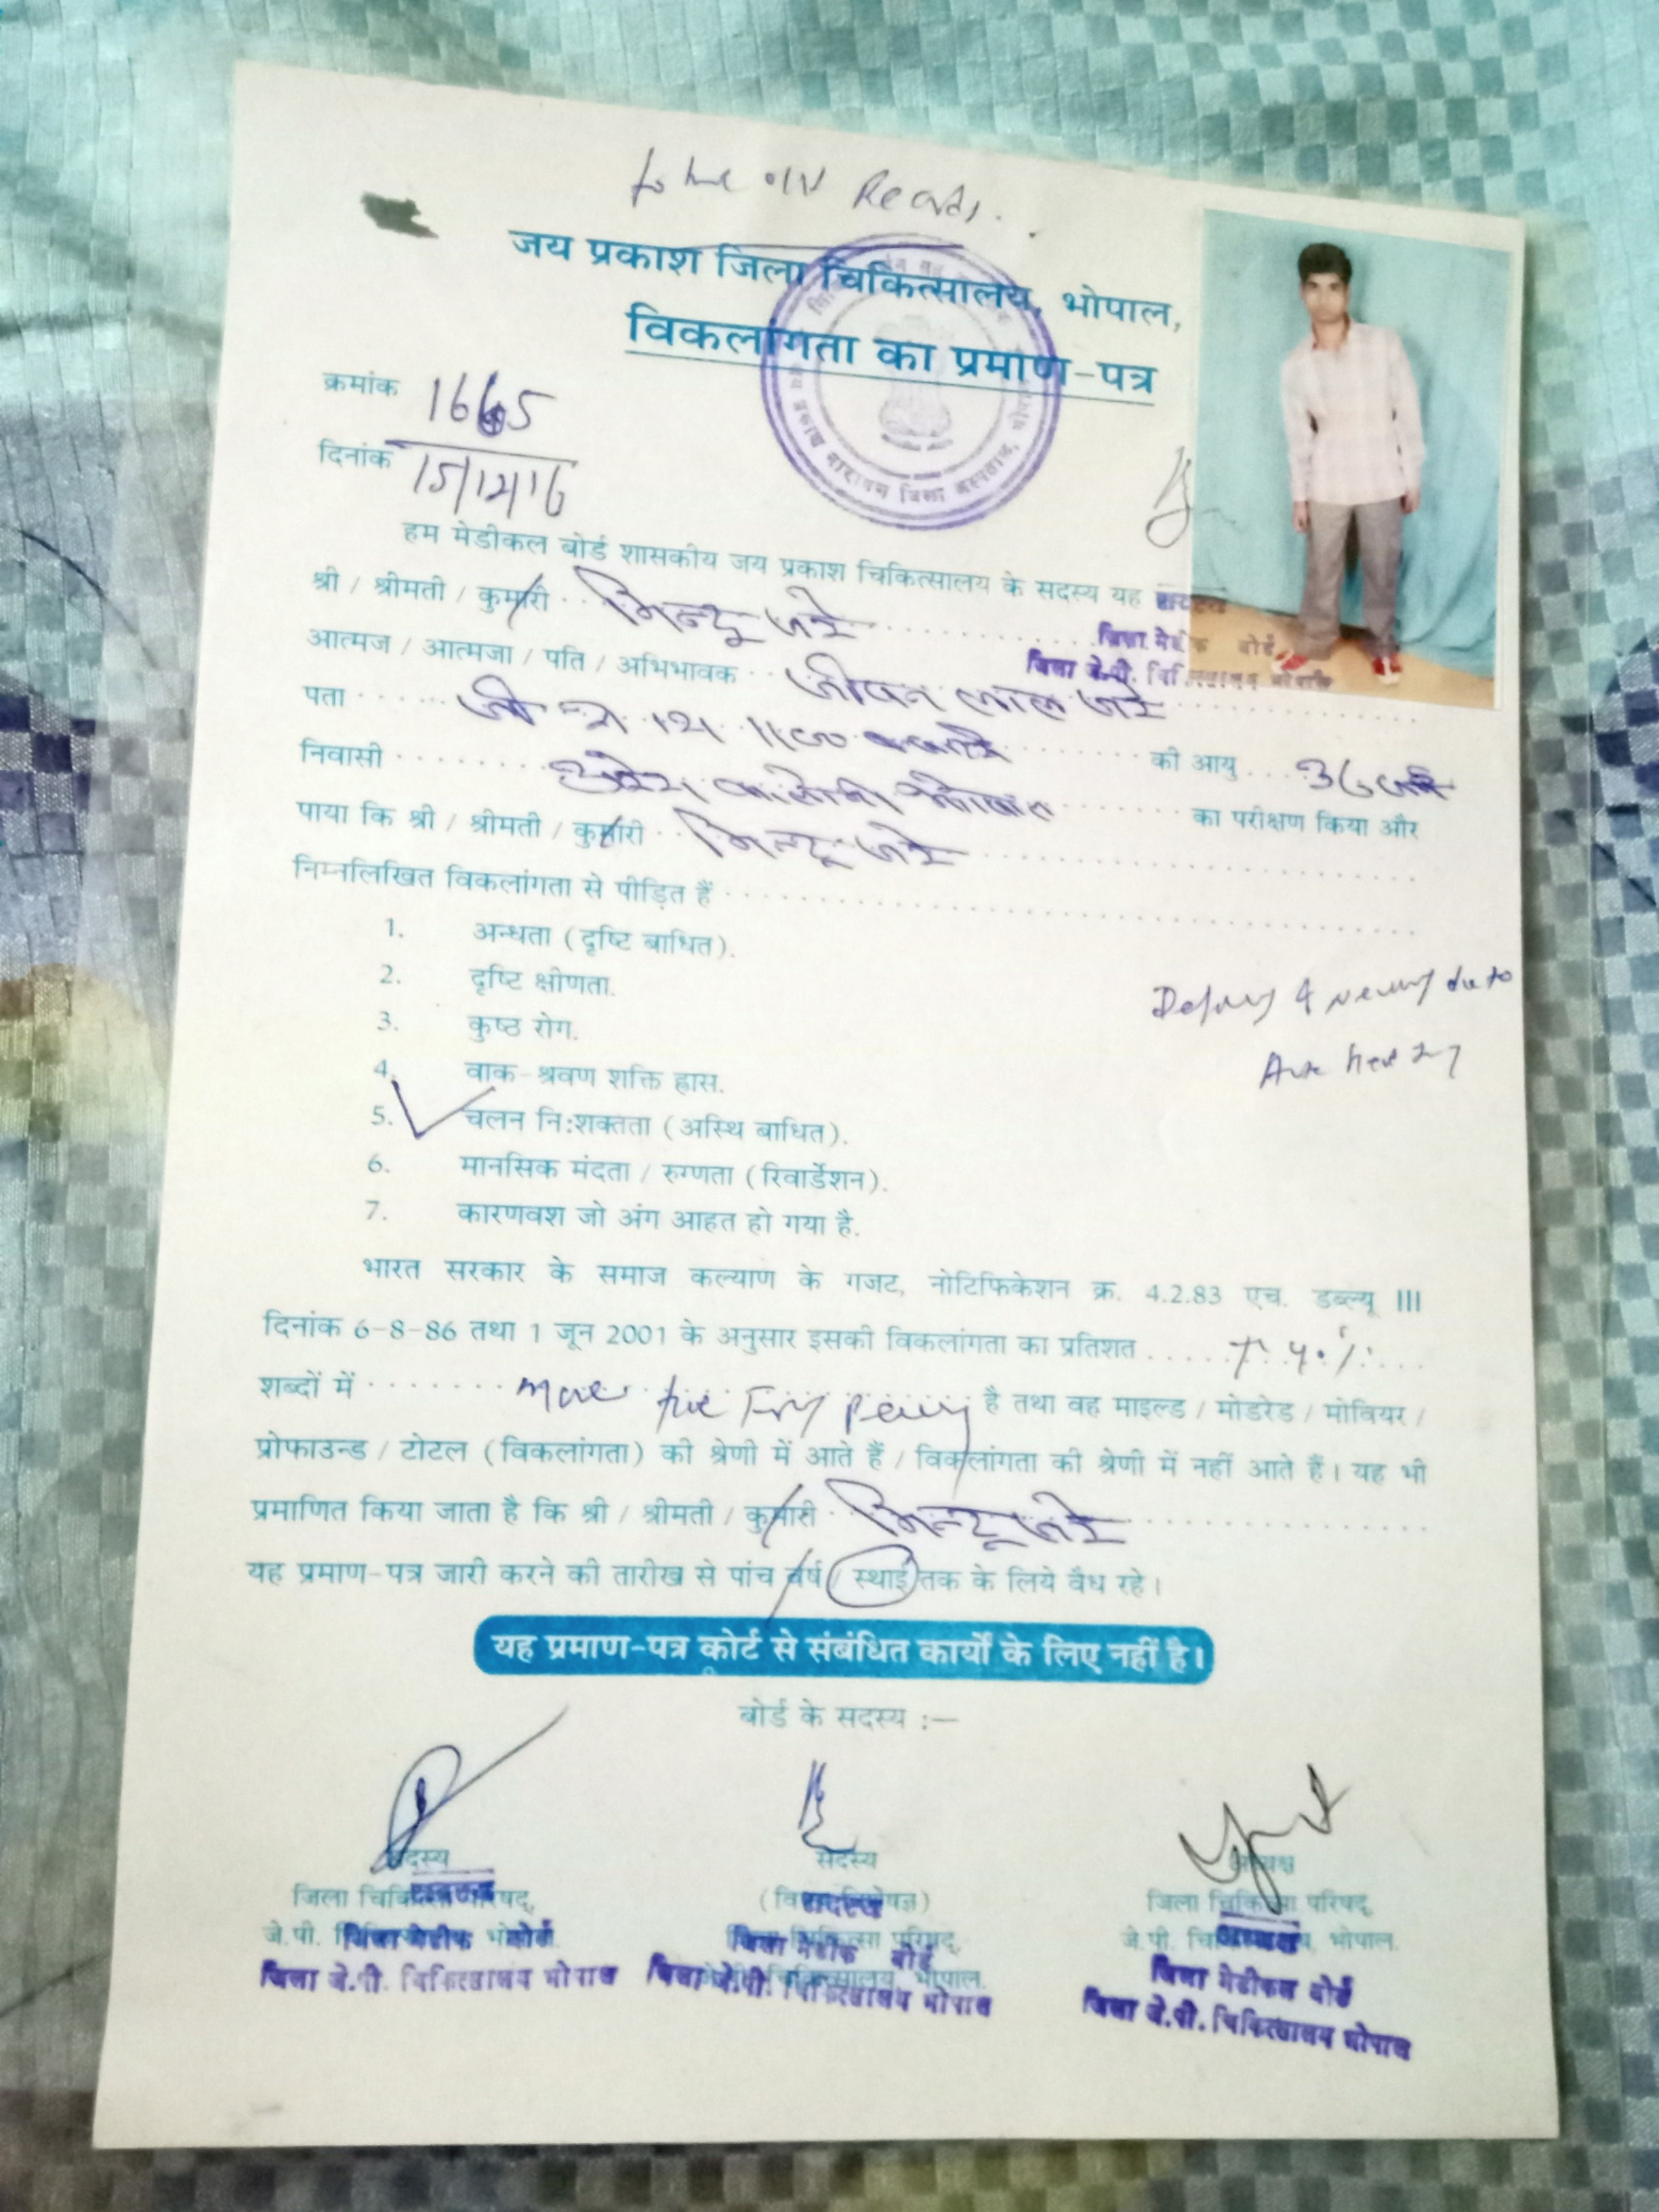 जय प्रकाश जिला चिकित्सालय, भोपाल,
विकलांगता का प्रमाण-पत्र
क्रमांक 1665
दिनांक 15/12/16
हम मेडीकल बोर्ड शासकीय जय प्रकाश चिकित्सालय के सदस्य यह
श्री / श्रीमती / कुमारी
जिला जे.पी.
आत्मज / आत्मजा / पति / अभिभावक जीवन लाल
पता की आयु 36
निवासी का परीक्षण किया और
पाया कि श्री / श्रीमती / कुमारी
निम्नलिखित विकलांगता से पीड़ित हैं
1. अन्धता (दृष्टि बाधित).
2. दृष्टि क्षीणता.
3. कुष्ठ रोग.
4. वाक-श्रवण शक्ति ह्रास.
5. चलन नि:शक्तता (अस्थि बाधित).
6. मानसिक मंदता / रुग्णता (रिवार्डेशन).
7. कारणवश जो अंग आहत हो गया है.
भारत सरकार के समाज कल्याण के गजट, नोटिफिकेशन क्र. 4.2.83 एच. डब्ल्यू III
दिनांक 6-8-86 तथा 1 जून 2001 के अनुसार इसकी विकलांगता का प्रतिशत
शब्दों में है तथा वह माइल्ड / मोडरेड / मोवियर /
प्रोफाउन्ड / टोटल (विकलांगता) की श्रेणी में आते हैं / विकलांगता की श्रेणी में नहीं आते हैं। यह भी
प्रमाणित किया जाता है कि श्री / श्रीमती / कुमारी
यह प्रमाण-पत्र जारी करने की तारीख से पांच वर्ष / स्थाई तक के लिये वैध रहे।
यह प्रमाण-पत्र कोर्ट से संबंधित कार्यों के लिए नहीं है।
बोर्ड के सदस्य :—
सदस्य सदस्य अध्यक्ष
जिला चिकित्सा परिषद्, (विषय विशेषज्ञ) जिला चिकित्सा परिषद्,
जे.पी. चिकित्सालय, भोपाल. जिला चिकित्सा परिषद्, जे.पी. चिकित्सालय, भोपाल.
जिला मेडीकल बोर्ड जिला मेडीकल बोर्ड जिला मेडीकल बोर्ड
जिला जे.पी. चिकित्सालय भोपाल जिला जे.पी. चिकित्सालय भोपाल जिला जे.पी. चिकित्सालय भोपाल